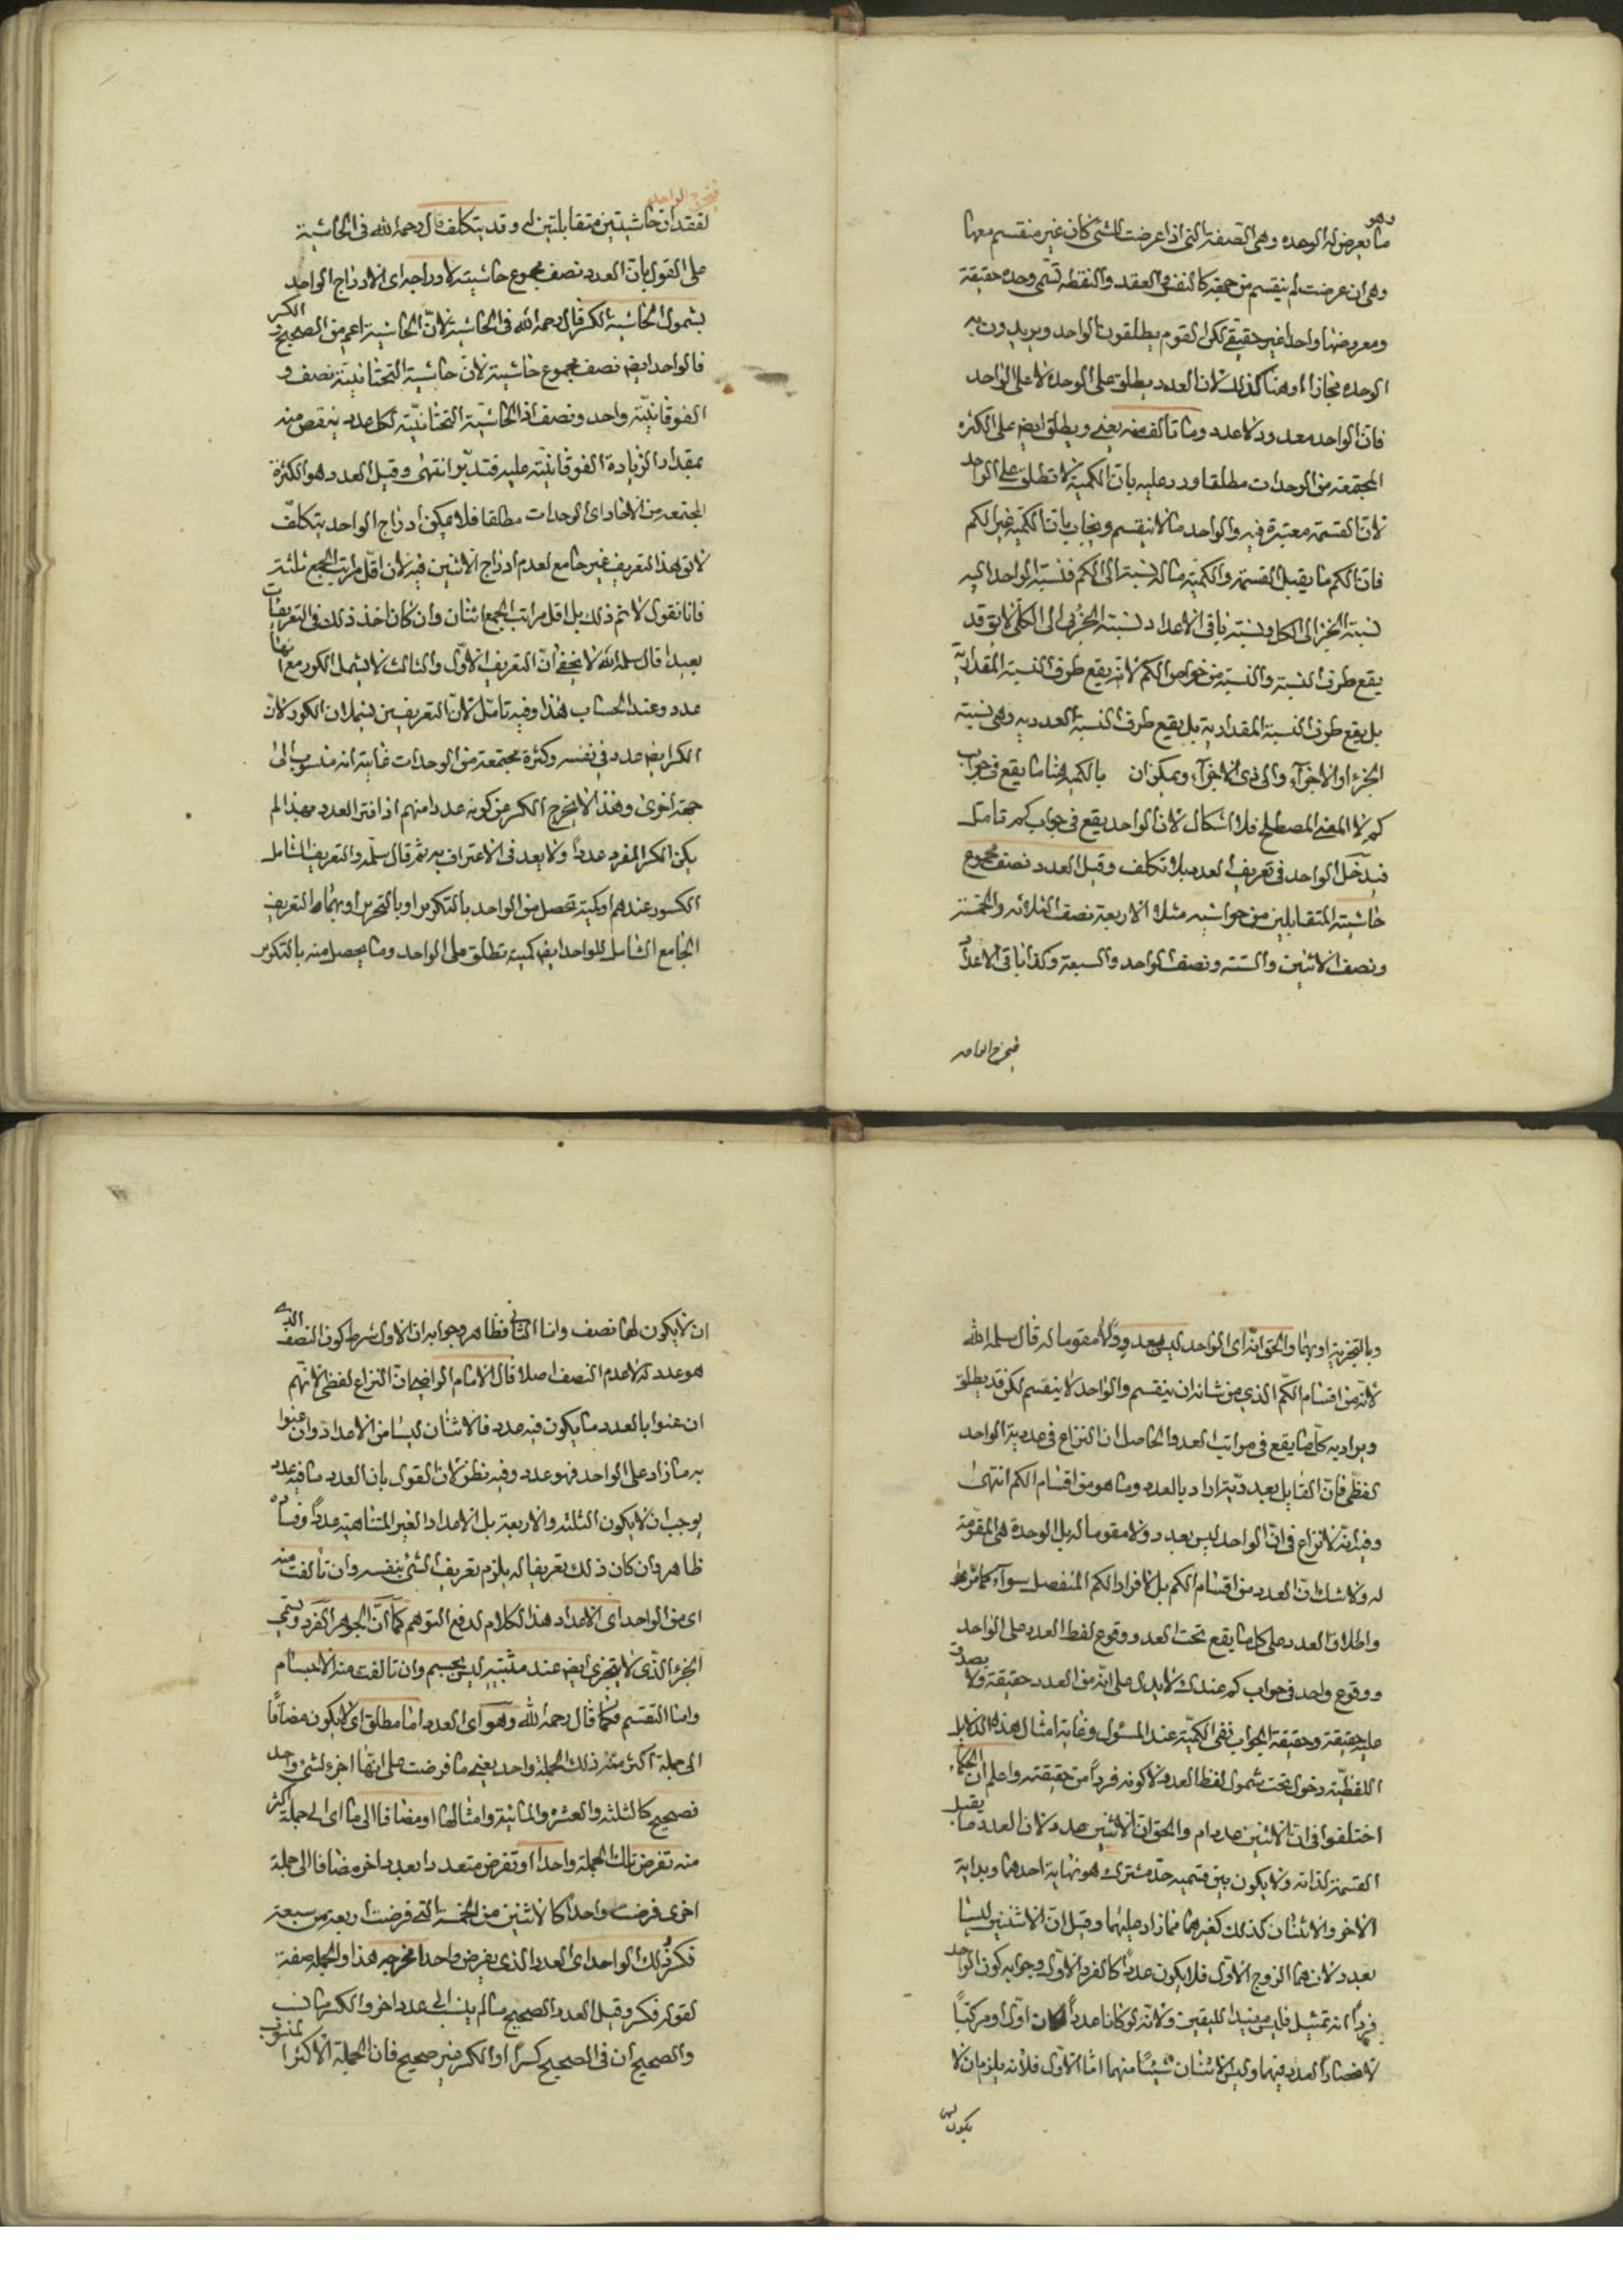 وهو
ما يعرض له الوحده وهى الصفة التى اذا عرضت للشئ كان غير منقسم معها
وهى ان عرضت لم ينقسم من جهة كالنفس والعقد والنقطه تسمى وحده حقيقة
ومعروضها واحدا غير حقيقى لكن القوم يطلقون الواحد ويريدون به
الوحده مجازا وهنا كذلك لان العدد يطلق على الوحده لا على الواحد
فان الواحد معدود لا عدد وما تالف منه يعنى ويطلق ايضا على الكثره
المجتمعة من الوحدات مطلقا ورد عليه بان الكمية لا تطلق على الواحد
لان القسمة معتبرة فيه والواحد ما لا ينقسم ويجاب بان الكمية غير الكم
فان الكم ما يقبل القسمة والكمية ما له نسبة الى الكم فنسبة الواحد اليه
نسبة الجزء الى الكل ونسبة باقى الاعداد نسبة الجزئى الى الكلى لا يق قد
يقع طرف النسبة والنسبة من خواص الكم لانه يقع طرف النسبة المقدارية
بل يقع طرف النسبة المقدارية بل يقع طرف النسبة العددية وهى نسبة
الجزء او الاجزآء والى ذى الاجزآء ويمكن ان بالكمية هنا ما يقع فى جواب
كم لا المعنى المصطلح فلا اشكال لان الواحد يقع فى جواب كم تامل
فيدخل الواحد فى تعريف العدد بلا تكلف وقيل العدد نصف مجموع
حاشيته المتقابلين من حواشيه مثلا الاربعة نصف الثلاثه والخمسة
ونصف الاثنين والستة ونصف الواحد والسبعة وكذا باقى الاعداد
فيخرج الواحد
فيخرج الواحد
لفقدان حاشيتين متقابلتين له وقد يتكلف قال رحمه الله فى الحاشية
على القول بان العدد نصف مجموع حاشيته لادراجه اى لادراج الواحد
بشمول الحاشية الكسر قال رحمه الله فى الحاشية لان الحاشية اعم من الصحيح والكسر
فالواحد ايضا نصف مجموع حاشيته لان حاشيته التحتانية نصف و
الفوقانية واحد ونصف اذ الحاشية التحتانية لكل عدد ينقص منه
بمقدار الزيادة الفوقانية عليه فتدبر انتهى وقيل العدد هو الكثرة
المجتمعه من الاحاد اى الوحدات مطلقا فلا يمكن ادراج الواحد بتكلف
لا يق هذا التعريف غير جامع لعدم ادراج الاثنين فيه لان اقل مراتب الجمع ثلثة
فانا نقول لا نم ذلك بل اقل مراتب الجمع اثنان وان كان اخذ ذلك فى التعريفات
بعيدا قال سلمه الله لا يخفى ان التعريف الاول والثالث لا يشمل الكسور مع انها
عدد وعند الحساب هذا وفيه تامل لان التعريفين يشملان الكسور لان
الكسر ايضا عدد فى نفسه وكثرة مجتمعة من الوحدات غايته انه منسوب الى
جهة اخرى وهذا لا يخرج الكسر من كونه عددا منهم اذ افسر العدد بهذا لم
يكن الكسر المفرد عدداً ولا بعد فى الاعتراف به ثم قال سلمه والتعريف الشامل
الكسور عندهم او كمية تحصل من الواحد بالتكرير او بالتجزية او بهما والتعريف
الجامع الشامل للواحد ايضا كمية تطلق على الواحد وما يحصل منه بالتكرير
وبالتجزية او بهما والحق انه اى الواحد ليس بعدد ولا مقوما له قال سلمه الله
لانه من اقسام الكم الذى من شانه ان ينقسم والواحد لا ينقسم لكن قد يطلق
ويراد به كل ما يقع فى مراتب العد والحاصل ان النزاع فى عددية الواحد
لفظى فان القايل بعدديته اراد بالعدد وما هو من اقسام الكم انتهى
وفيه انه لا نزاع فى ان الواحد ليس بعدد ولا مقوما له بل الوحدة هى المقومة
له ولا شك ان العدد من اقسام الكم بل لا افراد الكم المنفصل سوآء
واطلاق العدد على كل ما يقع تحت العد ووقوع لفظ العدد على الواحد
ووقوع واحد فى جواب كم عندك لا يدل على انه من العدد حقيقة ولا يصدق
عليه حقيقة وحقيقة الجواب نفى الكمية عند المسئول وغاية امثال هذه الدلايل
اللفظية دخول تحت شمول لفظ العدد لا كونه فرداً من حقيقته واعلم ان الحكماء
اختلفوا فى ان الاثنين عدد ام والحق ان الاثنين عدد لان العدد ما يقبل
القسمة لذاته ولا يكون بين قسميه حد مشترك هو نهاية احدهما وبداية
الاخر والاثنان كذلك كغيرهما مما زاد عليهما وقيل ان الاثنين ليسا
بعدد لان هما الزوج الاول فلا يكون عددا كالفرد الاول وجوابه كون الواحد
فرداً انه تمثيل فليس مفيدا لليقين ولانه لو كانا عدداً لكان اولا ومركبًا
لانحصار العدد فيهما وليس الاثنان شيئًا منهما اما الاول فلانه يلزم ان لا
يكون لهما
ان لا يكون لهما نصف واما الثانى فظاهر وجوابه ان الاول شرط كون النصف الذى
هو عدد له لا عدم النصف اصلا قال الامام الرازى ان النزاع لفظى لانهم
ان عنوا بالعدد ما يكون فيه عدد فالاثنان ليسا من الاعداد وان عنوا
به ما زاد على الواحد فهو عدد وفيه نظر لان القول بان العدد ما فيه عدد
يوجب ان لا يكون الثلثة والاربعة بل الاعداد الغير المتناهية عدداً وفساده
ظاهر وان كان ذلك تعريفا له يلزم تعريف الشئ بنفسه وان تالفت منه
اى من الواحد اى الاعداد هذا الكلام لدفع التوهم كما ان الجوهر الفرد ويسمى
الجزء الذى لا يتجزى ايضا عند مثبتيه ليس بجسم وان تالفت منه الاجسام
واما التقسيم فكما قال رحمه الله وهو اى العدد اما مطلق اى لا يكون مضافًا
الى جملة اكثر منه ذلك الجملة واحد يعنى ما فرضت على انها اجزء لشئ واحد
فصحيح كالثلثة والعشره والمائية وامثالها او مضافا الى ما اى الى جملة اكثر
منه تفرض تلك الجملة واحدا او تفرض متعددا بعدد اخر مضافا الى جملة
اخرى فرضت واحداً كالاثنين من الخمسة التى فرضت اربعة من سبعة
فكسر وذلك الواحد اى العدد الذى يفرض واحدا مخرجه هذا والجملة صفة
لقوله فكسر وقيل العدد الصحيح ما لم ينسب الى عدد اخر والكسر ما نسب
والصحيح ان فى الصحيح كسرًا او الكسر غير صحيح فان الجملة الاكثر المنسوب